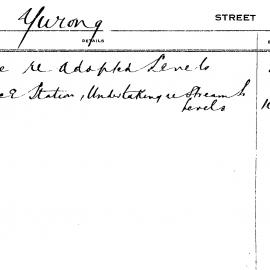 Yurong STREET
DETAILS
re adopted Levels
Station, Undertaking re Stream St
Levels